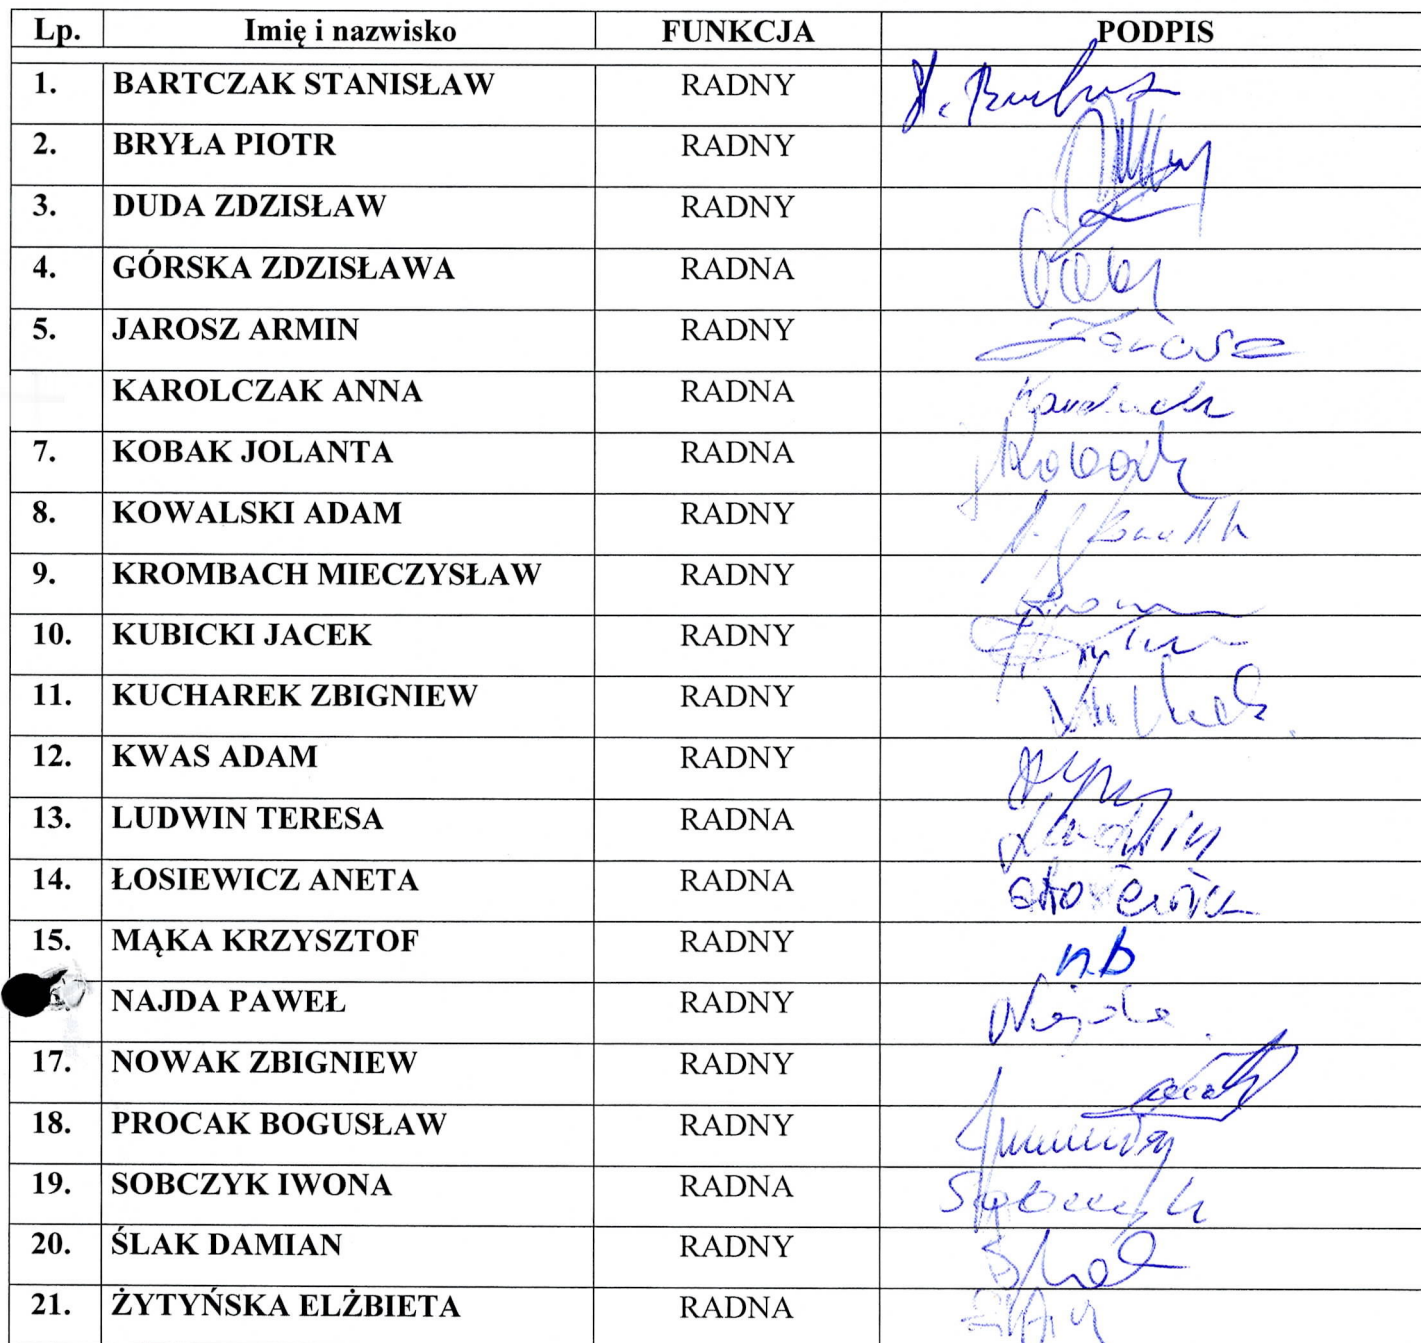 Lp. Imię i nazwisko FUNKCJA PODPIS
1. BARTCZAK STANISŁAW RADNY
2. BRYŁA PIOTR RADNY
3. DUDA ZDZISŁAW RADNY
4. GÓRSKA ZDZISŁAWA RADNA
5. JAROSZ ARMIN RADNY Jarosz
KAROLCZAK ANNA RADNA
7. KOBAK JOLANTA RADNA JKobak
8. KOWALSKI ADAM RADNY
9. KROMBACH MIECZYSŁAW RADNY
10. KUBICKI JACEK RADNY
11. KUCHAREK ZBIGNIEW RADNY
12. KWAS ADAM RADNY
13. LUDWIN TERESA RADNA Ludwin
14. ŁOSIEWICZ ANETA RADNA
15. MĄKA KRZYSZTOF RADNY n.b
NAJDA PAWEŁ RADNY Najda
17. NOWAK ZBIGNIEW RADNY
18. PROCAK BOGUSŁAW RADNY
19. SOBCZYK IWONA RADNA Sobczyk
20. ŚLAK DAMIAN RADNY
21. ŻYTYŃSKA ELŻBIETA RADNA